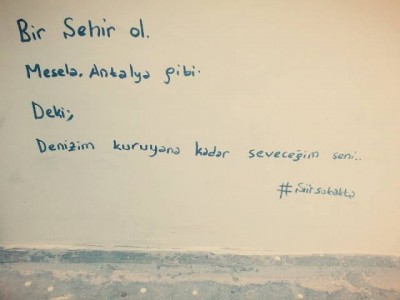 Bir Şehir ol.
Mesela. Antalya gibi.
Deki;
Denizim kuruyana kadar seveceğim seni..
#şiirsokakta